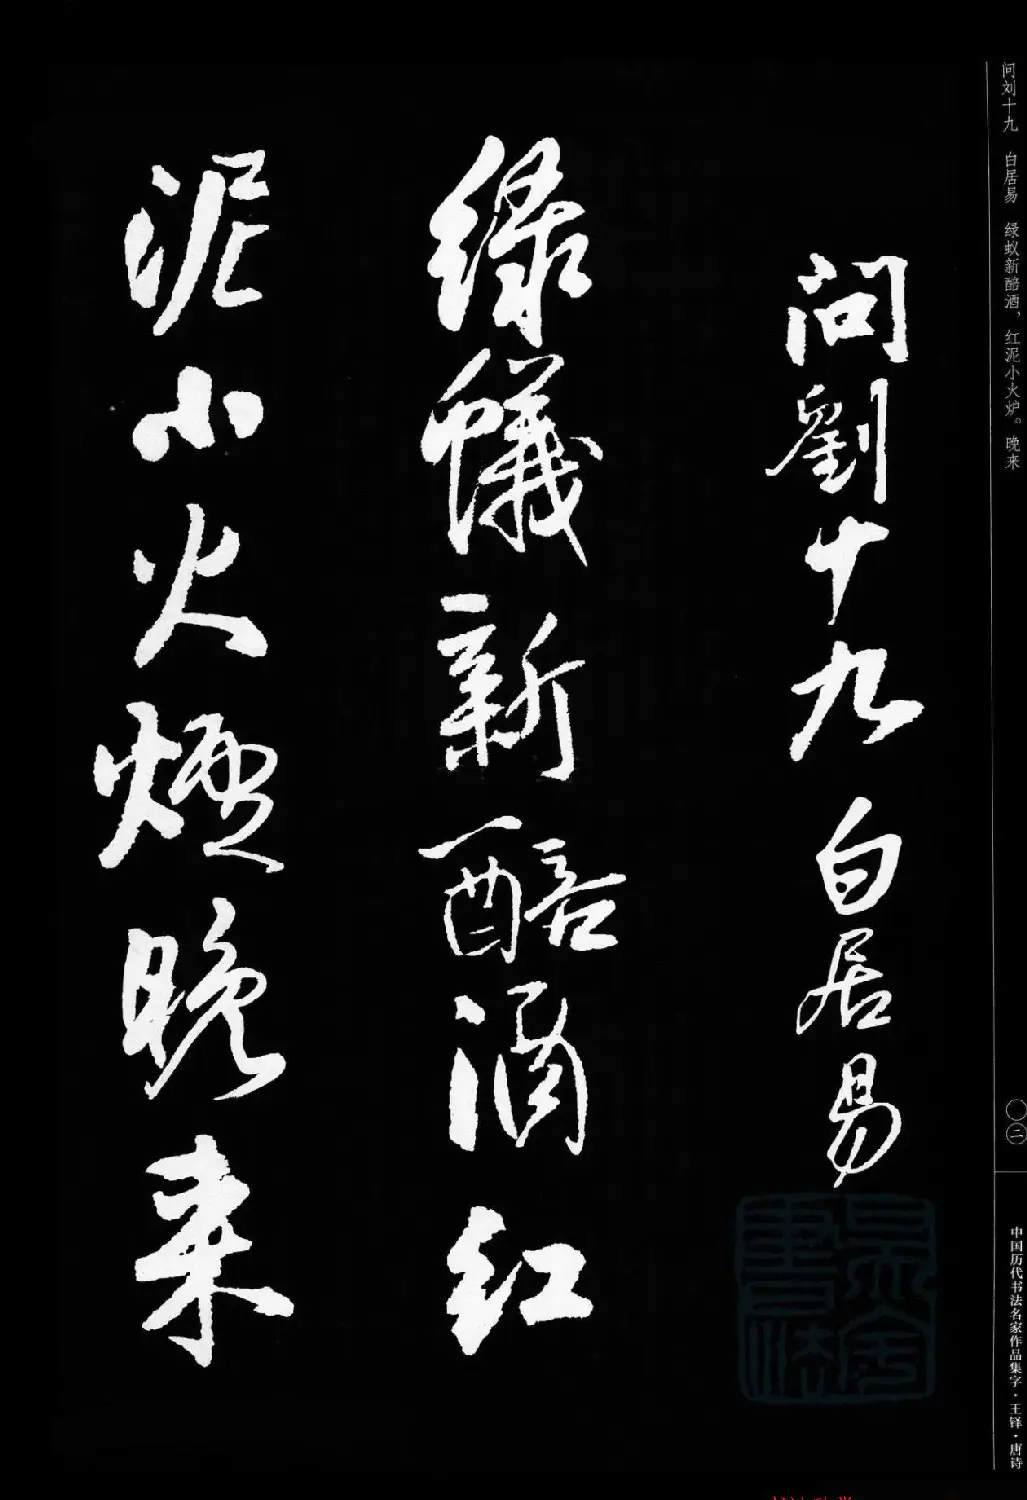 问刘十九　白居易　绿蚁新醅酒，红泥小火炉。晚来
問劉十九白居易
绿蟻新醅酒红
泥小火爐晚来
〇二
中国历代书法名家作品集字·王铎·唐诗